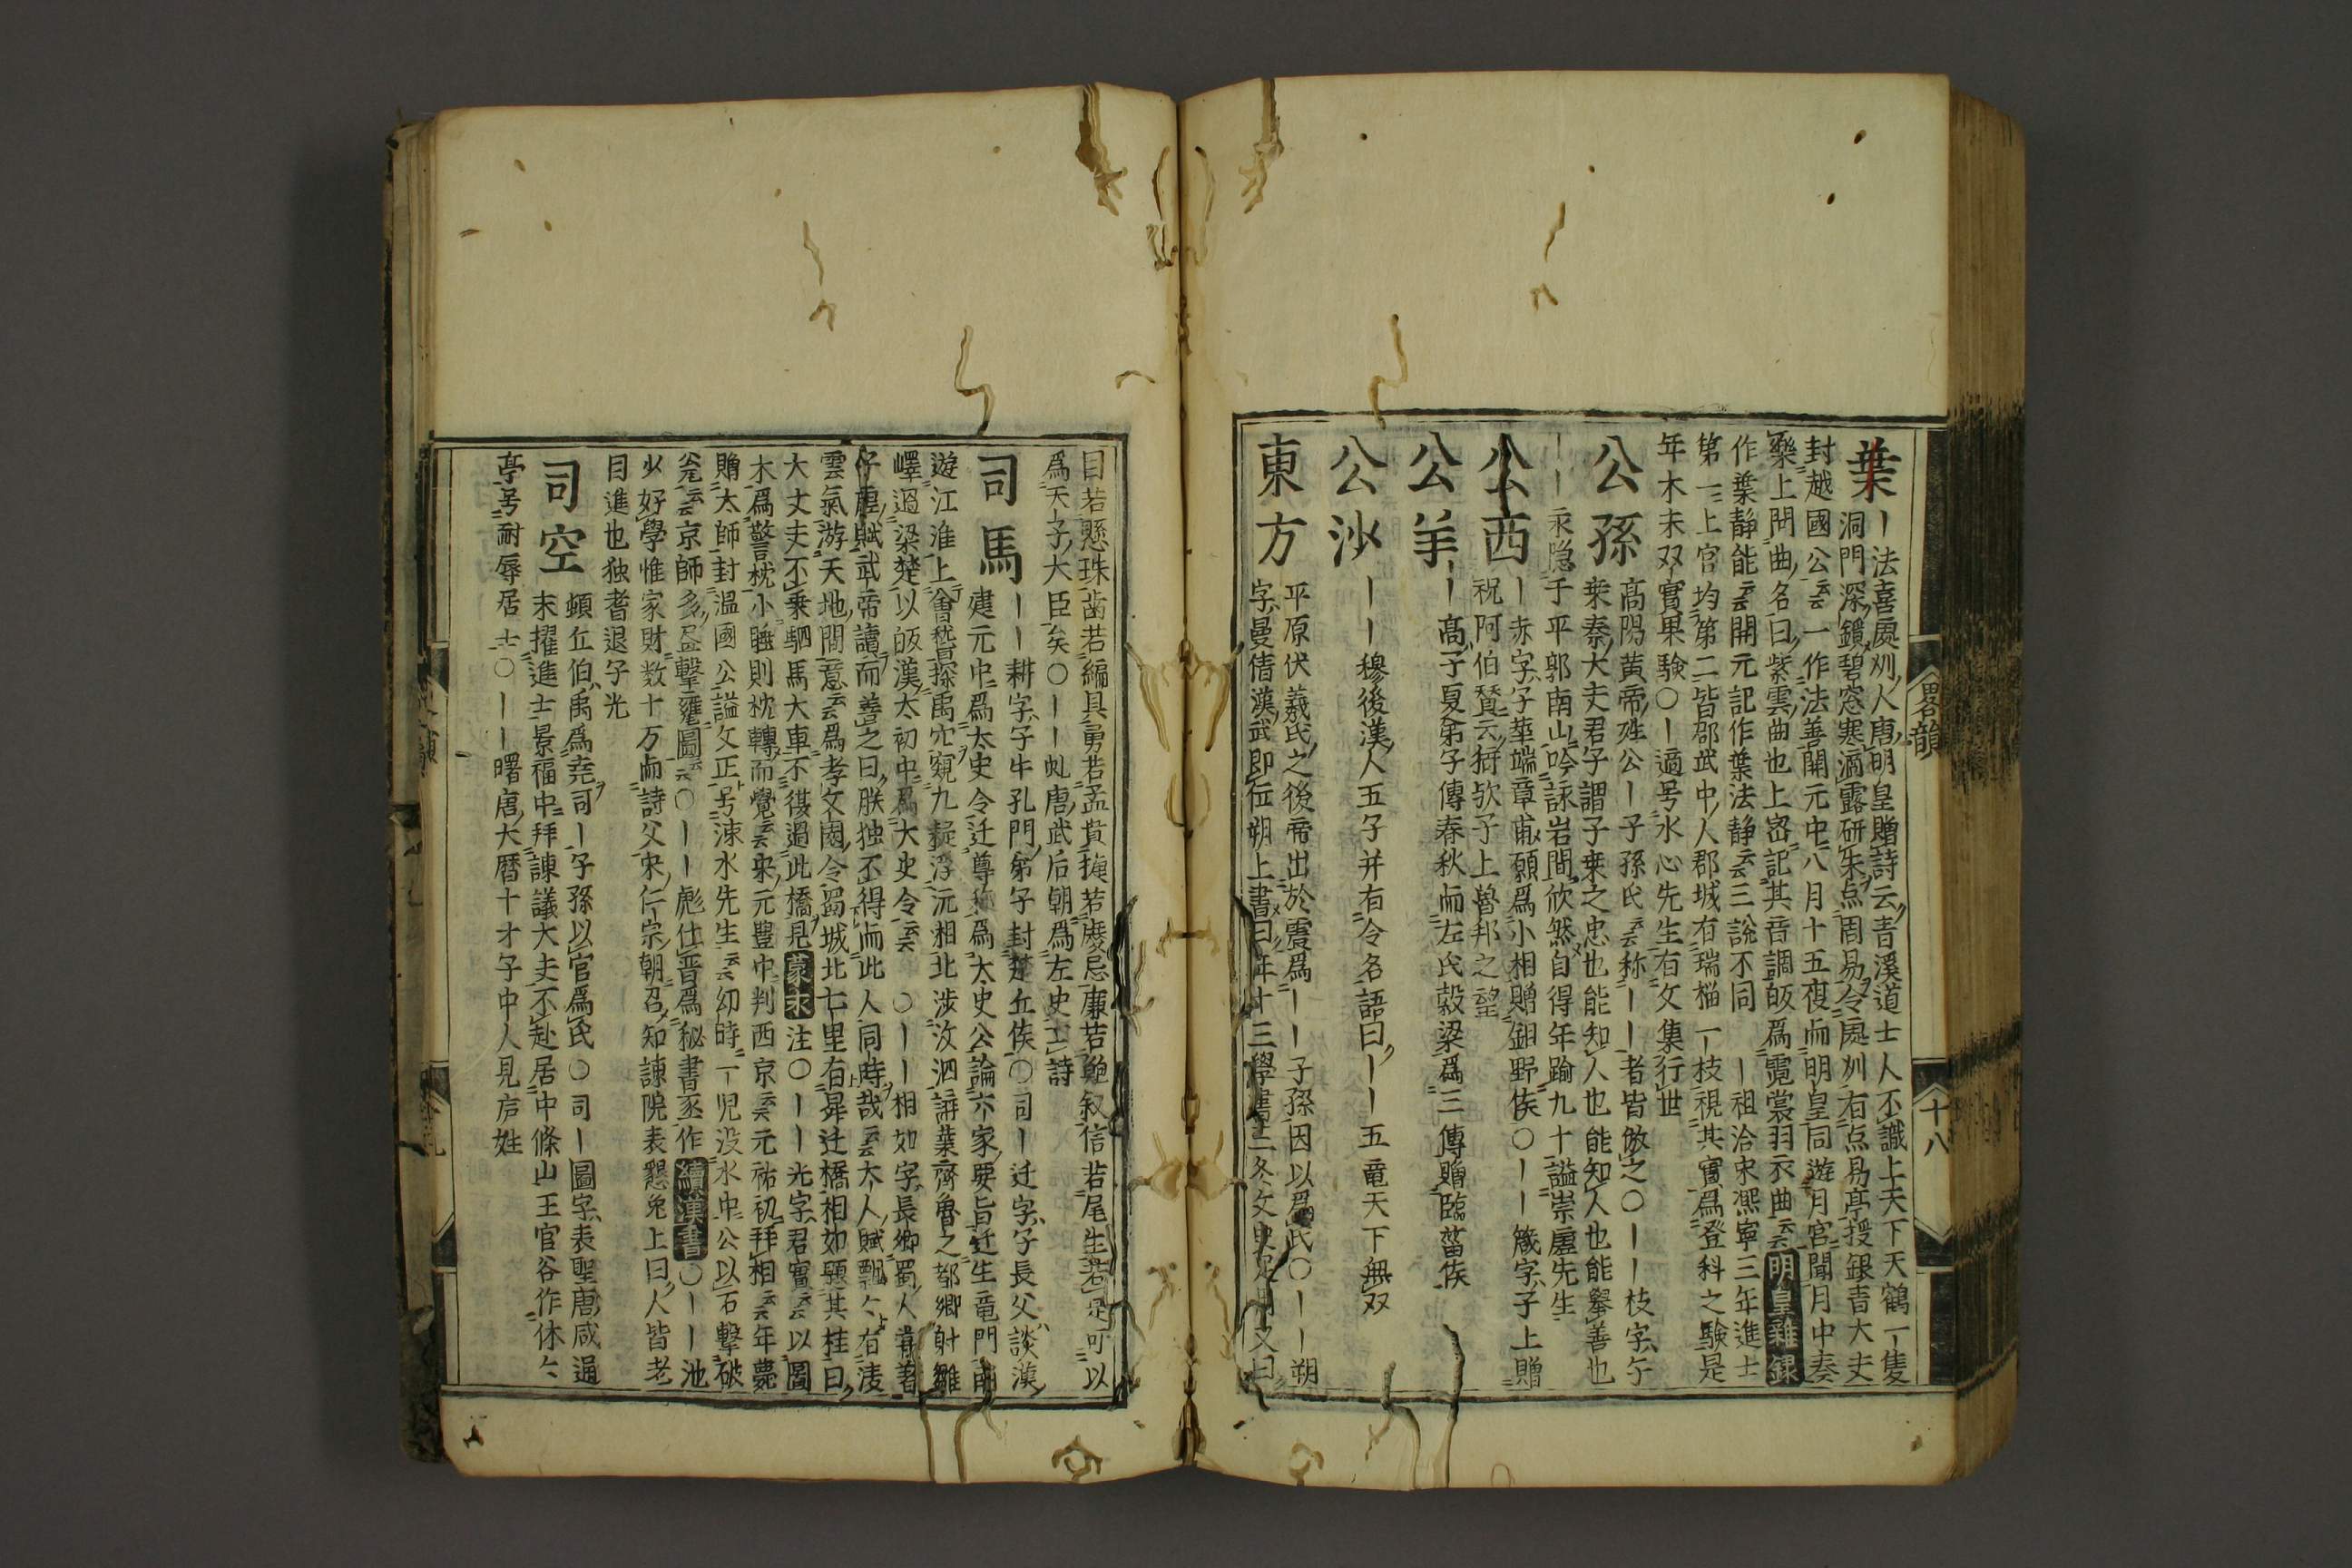 畧韻
十八
葉
｜法喜處刕人唐明皇贈詩云青溪道士人不識上天下天鶴一隻
洞門深鎖碧窓寒滴露研朱点周易令處刕有点易亭授銀青大夫
封越國公云云一作法善開元中八月十五夜而明皇同遊月宮聞月中奏
樂上問曲名曰紫雲曲也上密記其音調皈爲霓裳羽衣曲云云明皇雜録
作葉静能云云開元記作葉法静云云三說不同　｜祖洽宋凞寧三年進士
第一上官均第二皆邵武中人郡城有瑞榴一枝視其實爲登科之驗是
年木末双實果驗〇｜適号水心先生有文集行世
公孫
髙陽黄帝姓公｜子孫氏云云称｜｜者皆倣之〇｜｜枝字子
桒秦大夫君子謂子桒之忠也能知人也能知人也能舉善也
｜｜永隐于平郭南山吟詠岩間欣然自得年踰九十謚崇虚先生
公西
｜赤字子華端章甫願爲小相贈鉅野侯〇｜｜箴字子上贈
祝阿伯賛云猗欤子上魯邦之望
公羊
｜｜髙子夏弟子傳春秋而左氏穀梁爲三傳贈臨菑侯
公沙
｜｜穆後漢人五子并有令名語曰｜｜五竜天下無双
東方
平原伏羲氏之後帝出於震爲｜｜子孫因以爲氏〇｜｜朔
字曼倩漢武即位朔上書曰年十三學書三冬文史足用又曰
目若懸珠歯若編貝勇若孟賁捷若慶忌廉若鮑叔信若尾生若是可以
爲天子大臣矣〇｜｜虬唐武后朝爲左史士詩
司馬
｜｜耕字子牛孔門弟子封楚丘侯〇司｜迁字子長父談漢
建元中爲太史令迁尊称爲太史公論六家要旨迁生竜門南
遊江淮上會稽探禹穴窺九疑浮沅湘北渉汶泗講葉齊魯之都郷射鄒
嶧過梁楚以皈漢太初中爲大史令云云　〇｜｜相如字長卿蜀人嘗著
仔虚賦武帝讀而善之曰朕独不得而此人同時哉云云大人賦飄〻有凌
雲氣游天地間意云云爲孝文園令蜀城北七里有昇迁橋相如題其柱曰
大丈夫不乗駟馬大車不復過此橋見蒙求注〇｜｜光字君實云云以圎
木爲警枕小睡則枕轉而覺云云宋元豊中判西京云云元祐初拜相云云年薨
贈太師封温國公謚文正号涑水先生云云幼時一児没水中公以石撃破
瓮云云京師多盈撃甕圖云云〇｜｜彪仕晋爲秘書丞作續漢書〇｜｜池
少好學惟家財数十万而詩父宋仁宗朝召知諫院表懇免上曰人皆老
目進也独者退子光
司空
頓丘伯禹爲尭司｜子孫以官爲氏〇司｜圖字表聖唐咸通
末擢進士景福中拜諫議大夫不赴居中條山王官谷作休〻
亭号耐辱居士〇｜｜曙唐大暦十才子中人見戸姓